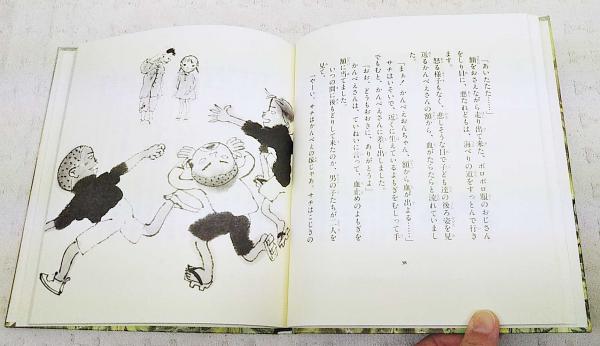 「あいたたた……」
額をおさえながら走り出て来た、ボロボロ服のおじさん
をしり目に、悪たれどもは、海べりの道をすっとんで行き
ます。
怒る様子もなく、悲しそうな目で子ども達の後ろ姿を見
送るかんべえさんの額から、血がたらたらと流れていまし
た。
「まあ！ かんべえおんちゃん、額から血が出よる……」
サチはいそいで、近くに生えているよもぎをむしって手
でもむと、かんべえさんに差し出しました。
「おお、どうもおおきに、ありがとうよ」
かんべえさんは、ていねいに言って、血止めのよもぎを
額に当てました。
いつの間に後もどりして来たのか、男の子たちが二人を
見て、
「やーい、サチはかんべえの嫁じゃあ。サチはこじきの
38